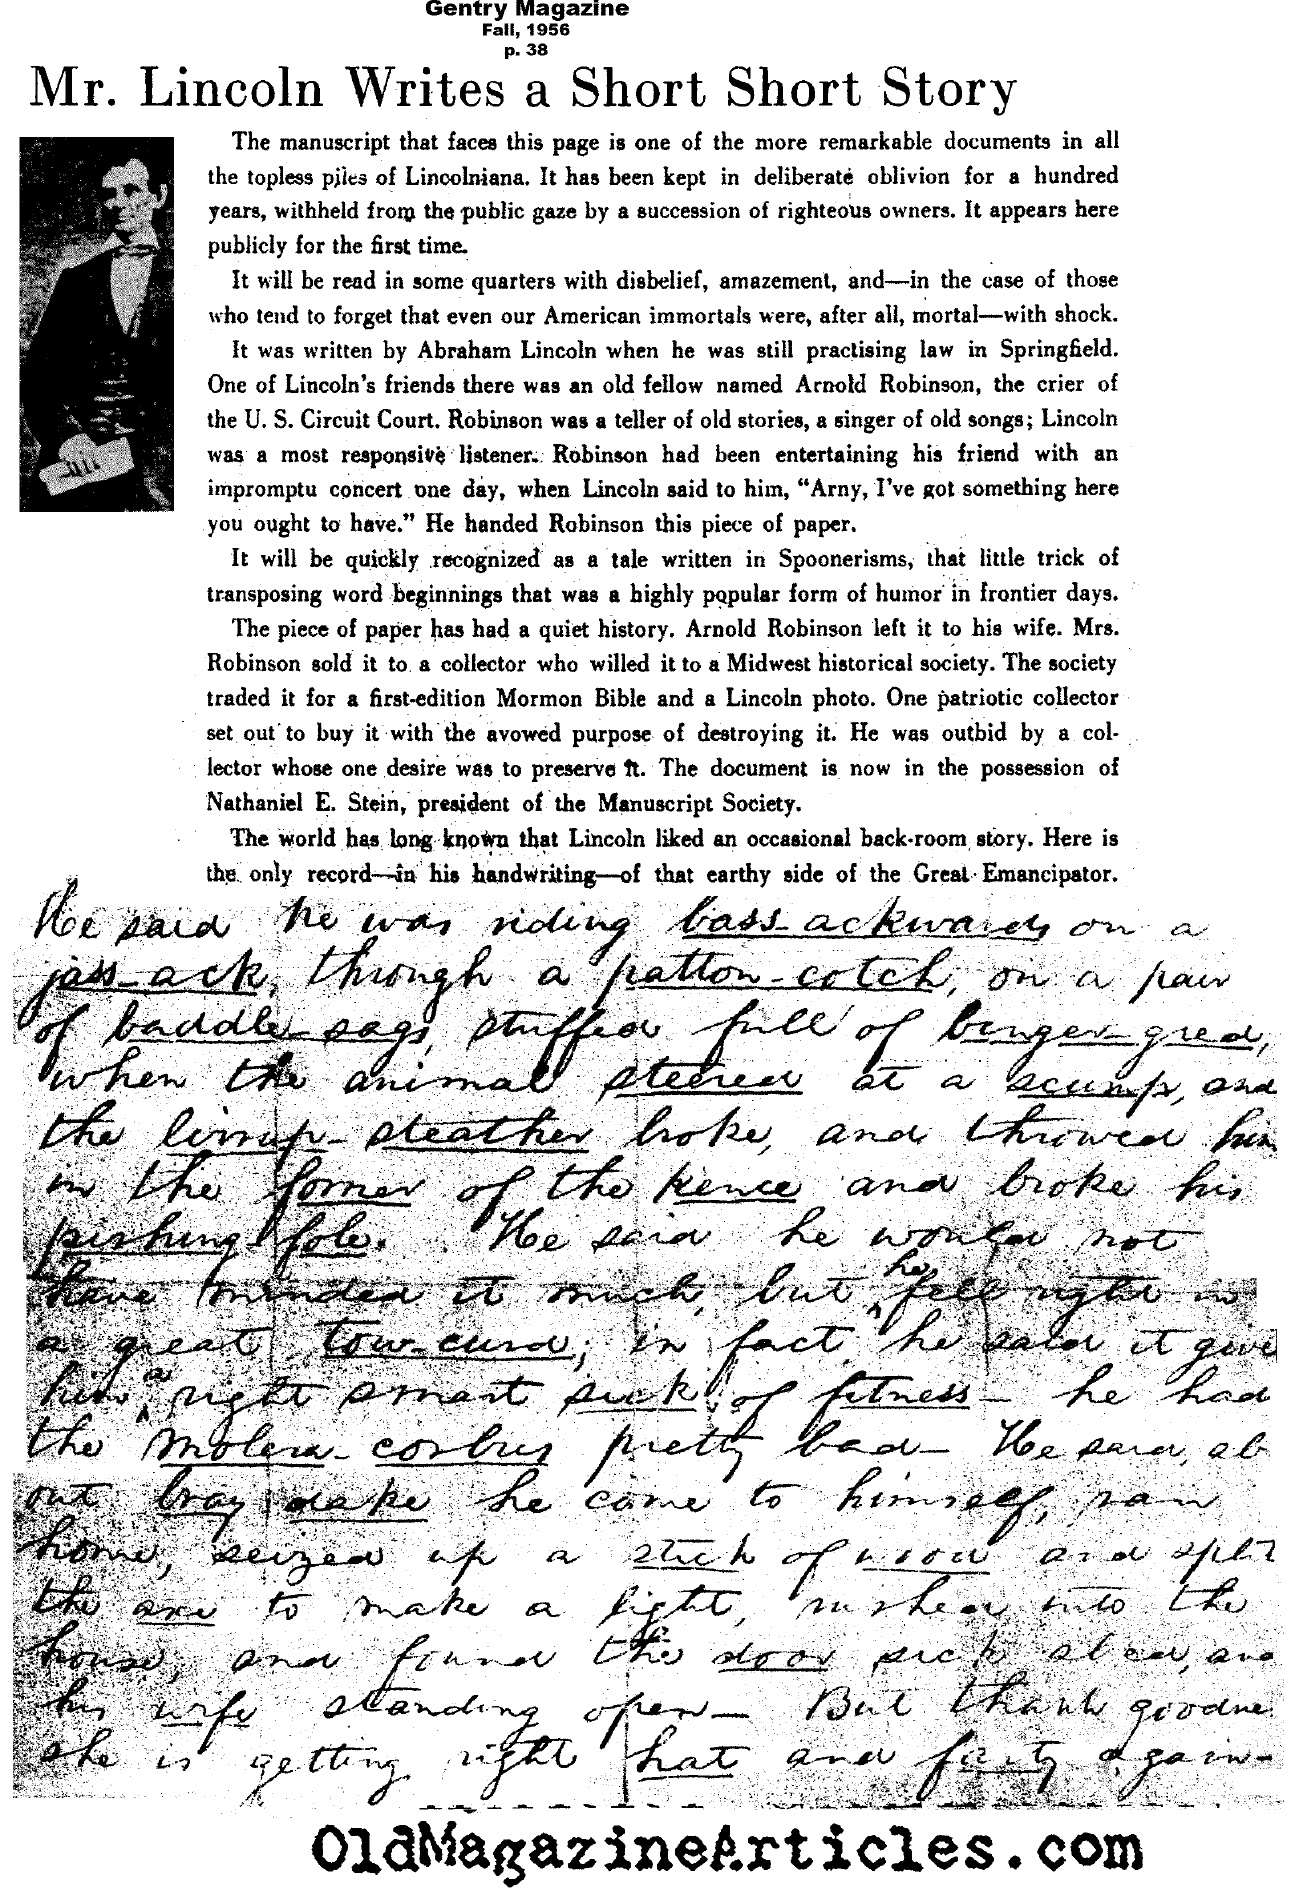 Gentry Magazine
Fall, 1956
p. 38
Mr. Lincoln Writes a Short Short Story
The manuscript that faces this page is one of the more remarkable documents in all
the topless piles of Lincolniana. It has been kept in deliberate oblivion for a hundred
years, withheld from the public gaze by a succession of righteous owners. It appears here
publicly for the first time.
It will be read in some quarters with disbelief, amazement, and—in the case of those
who tend to forget that even our American immortals were, after all, mortal—with shock.
It was written by Abraham Lincoln when he was still practising law in Springfield.
One of Lincoln's friends there was an old fellow named Arnold Robinson, the crier of
the U. S. Circuit Court. Robinson was a teller of old stories, a singer of old songs; Lincoln
was a most responsive listener. Robinson had been entertaining his friend with an
impromptu concert one day, when Lincoln said to him, "Arny, I've got something here
you ought to have." He handed Robinson this piece of paper.
It will be quickly recognized as a tale written in Spoonerisms, that little trick of
transposing word beginnings that was a highly popular form of humor in frontier days.
The piece of paper has had a quiet history. Arnold Robinson left it to his wife. Mrs.
Robinson sold it to a collector who willed it to a Midwest historical society. The society
traded it for a first-edition Mormon Bible and a Lincoln photo. One patriotic collector
set out to buy it with the avowed purpose of destroying it. He was outbid by a col-
lector whose one desire was to preserve it. The document is now in the possession of
Nathaniel E. Stein, president of the Manuscript Society.
The world has long known that Lincoln liked an occasional back-room story. Here is
the only record—in his handwriting—of that earthy side of the Great Emancipator.
He said he was riding bass-ackwards on a
jass-ack, through a patton-cotch, on a pair
of baddle-sags, stuffed full of binger-gred,
when the animal steered at a scump, and
the lirrup-steather broke, and throwed him
in the forner of the kence and broke his
pishing-fole. He said he would not
have minded it much, but he fell right in
a great tow-curd; in fact he said it give
him a right smart sick of fitness— he had
the molera-corbus pretty bad— He said, ab
out bray dake he come to himself, ran
home, seized up a stick of wood and split
the axe to make a light, rushed into the
house, and found the door sick abed, and
his wife standing open— But thank goodne
she is getting right hat and farty again—
OldMagazineArticles.com